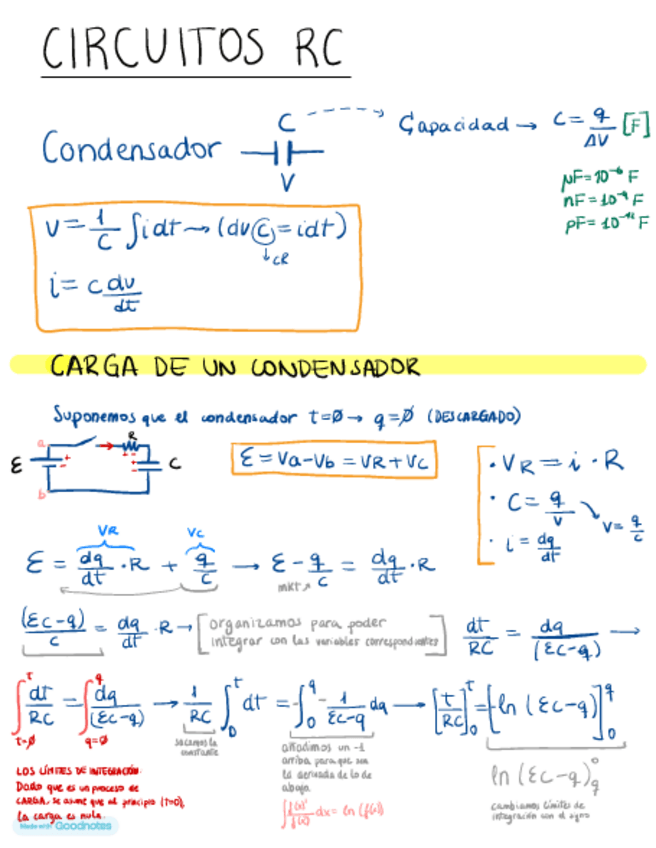 CIRCUITOS RC
C
Capacidad → C = q/ΔV [F]
Condensador
V
μF = 10⁻⁶ F
nF = 10⁻⁹ F
pF = 10⁻¹² F
V = 1/C ∫ i dt → (dv C = i dt)
↓ CR
i = C dv/dt
CARGA DE UN CONDENSADOR
Suponemos que el condensador t=Ø → q=Ø (DESCARGADO)
a
R
ε
C
b
ε = Va - Vb = VR + VC
· VR = i · R
· C = q/V
V = q/C
· i = dq/dt
VR
VC
ε = dq/dt · R + q/C → ε - q/C = dq/dt · R
mkt
(εC-q)/C = dq/dt · R → [organizamos para poder
integrar con las variables correspondientes]
dt/RC = dq/(εC-q) →
∫ t t=Ø dt/RC = ∫ q q=Ø dq/(εC-q) → 1/RC ∫₀ᵗ dt = -∫₀^q -1/(εC-q) dq → [t/RC]₀ᵗ = -[ln (εC-q)]₀^q
sacamos la
constante
añadimos un -1
arriba para que sea
la derivada de lo de
abajo.
∫ f(x)'/f(x) dx = ln (f(x))
ln (εC-q)
cambiamos límites de
integración con el signo
LOS LÍMITES DE INTEGRACIÓN.
Dado que es un proceso de
CARGA, se asume que al principio (t=0),
la carga es nula.
Made with Goodnotes